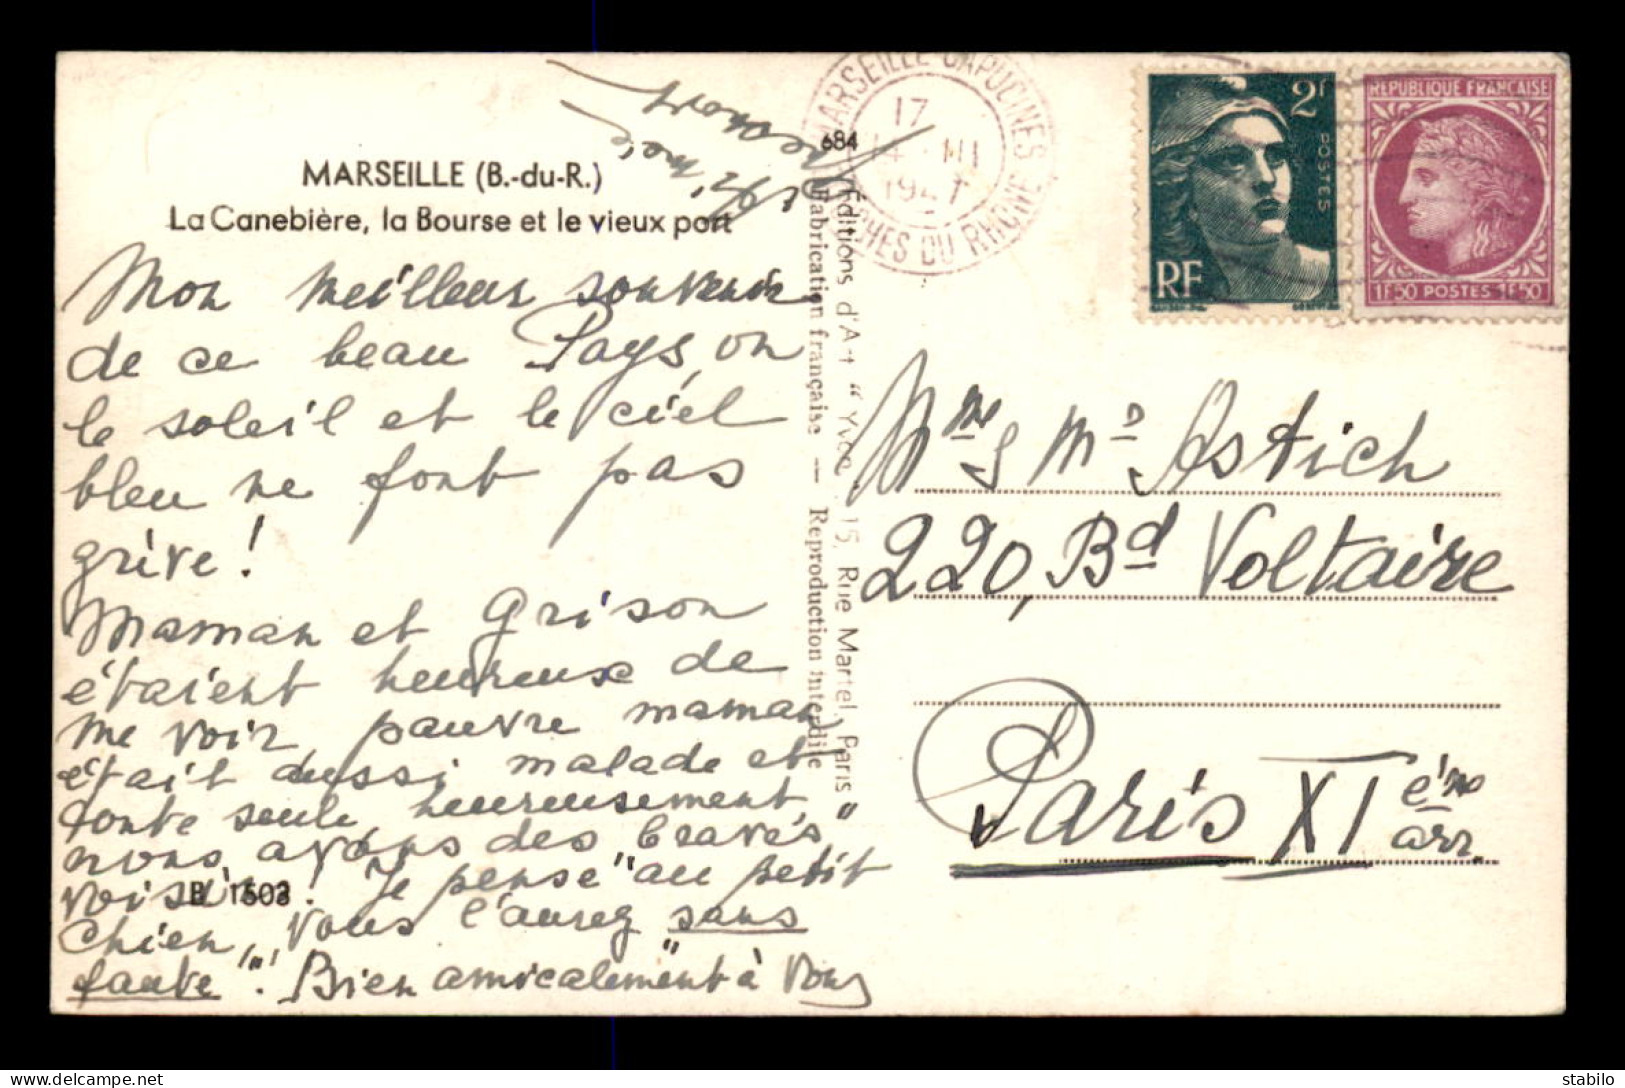 MARSEILLE (B.-du-R.)
La Canebière, la Bourse et le vieux port
Mon meilleur souvenir
de ce beau Pays, où
le soleil et le ciel
bleu ne font pas
grève!
Maman et Grison
étaient heureuse de
me voir, pauvre maman
était aussi malade et
toute seule heureusement,
nous avons des braves
voisins! Je pense "au petit
Chien", vous l'aurez sans
faute". Bien amicalement à vous
B 1503
684
Éditions d'Art "Yvon", 15, Rue Martel, Paris"
Fabrication française — Reproduction interdite
MARSEILLE CAPUCINES
17
14 III
1947
BCHES DU RHONE
2f
POSTES
RF
REPUBLIQUE FRANCAISE
1F50 POSTES 1F50
Mme & Mr Astich
220, Bd Voltaire
Paris XI ème
arr
stabilo